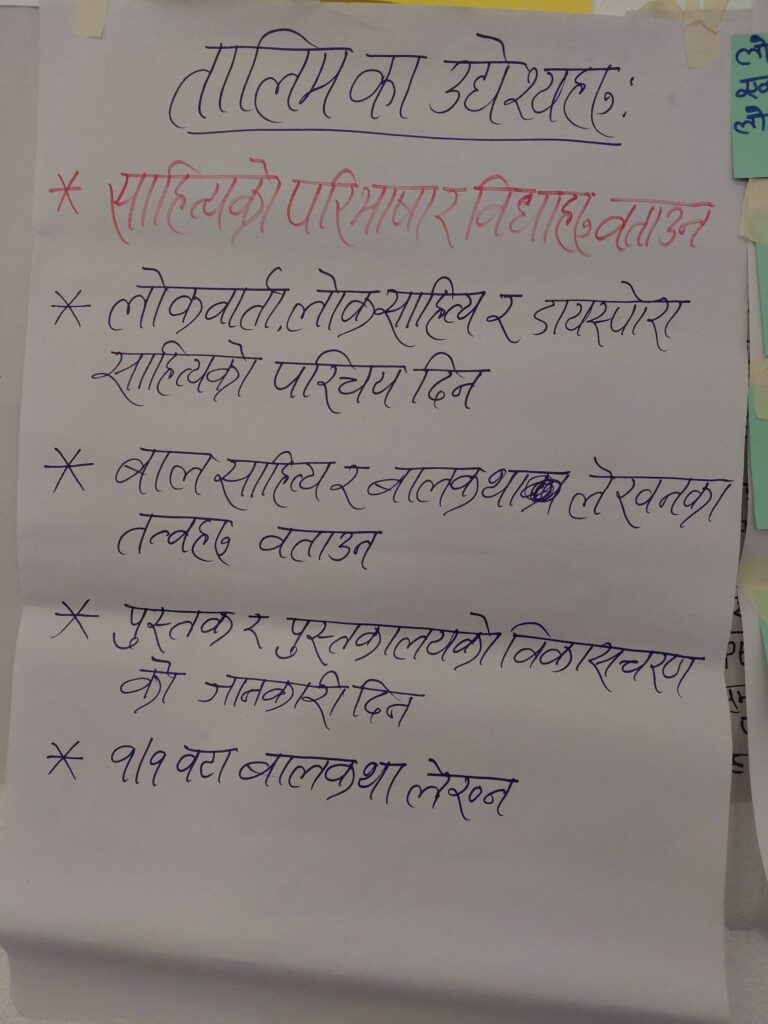 तालिमका उद्येश्यहरू:
* साहित्यको परिभाषा र विधाहरू वताउन
* लोकवार्ता, लोकसाहित्य र डायस्पोरा
साहित्यको परिचय दिन
* बाल साहित्य र बालकथा लेखनका
तत्वहरू वताउन
* पुस्तक र पुस्तकालयको विकासचरण
को जानकारी दिन
* १/१ वटा बालकथा लेख्न